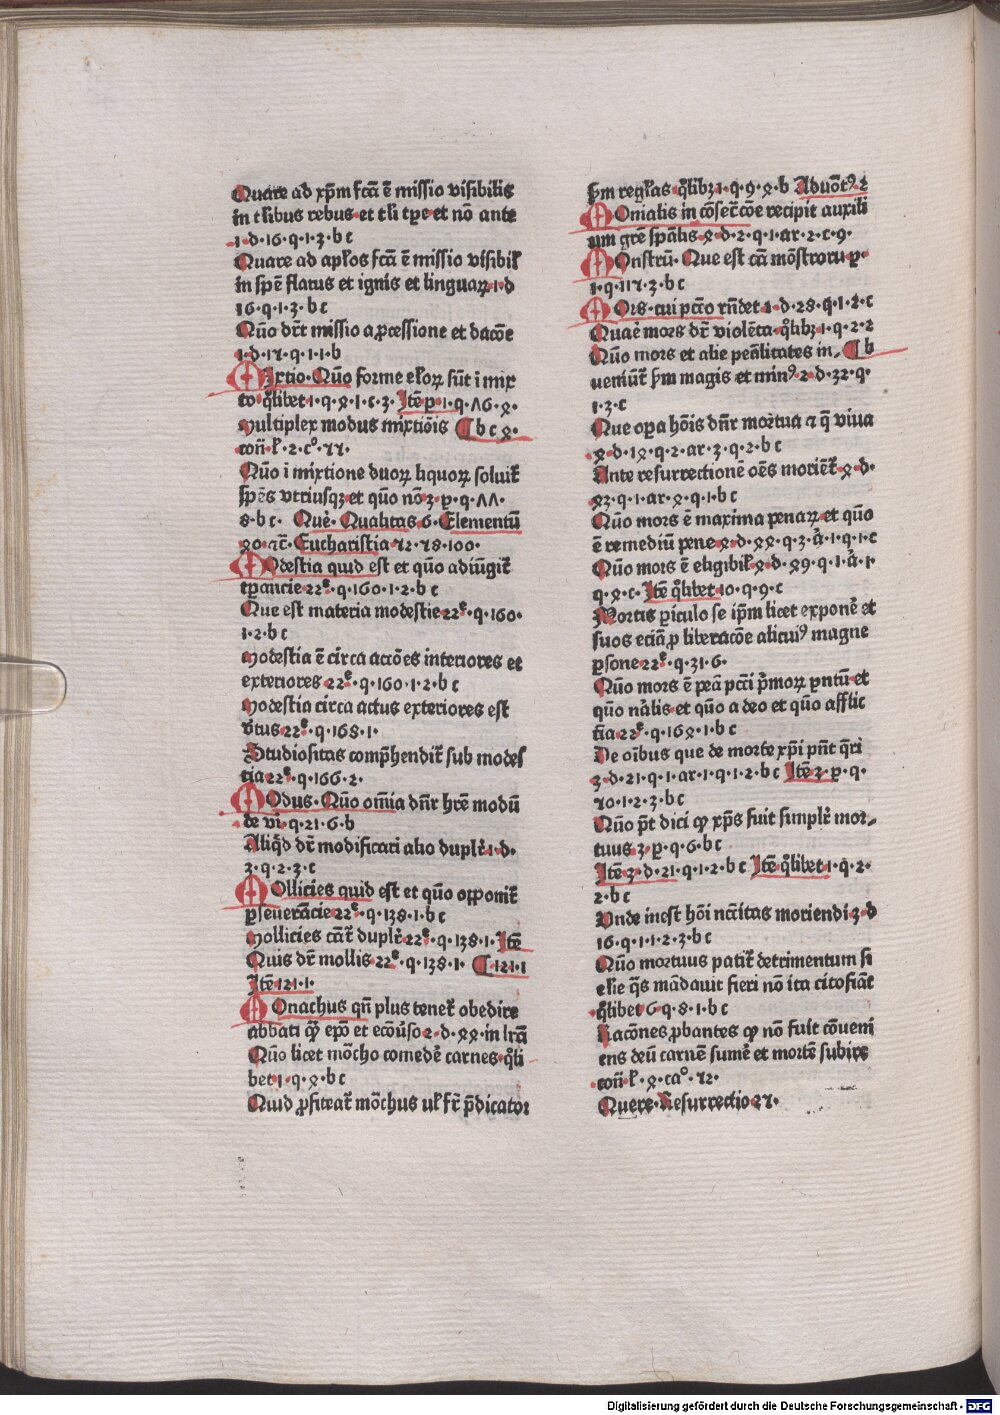 Quare ad xp̄m fctā ē missio visibilis
in tłibus rebus et tłi tp̄e et nō ante
1·d·16·q·1·3·b c
Quare ad apłos fctā ē missio visibił
in spē flatus et ignis et linguaꝝ 1·d
16·q·1·3·b c
Quō dr̄t missio a ꝓcessione et dacōe
1·d·17·q·1·1·b
Mixtio·Quō forme ełoꝝ sūt ī mix
to qͦlibet 1·q·ꝯ·1·c·3·Itē p·1·q·ꓥ6·ꝯ·
Multiplex modus mixtiōis ¶ b c ꝯ·
con̄·ł·2·cͦ·77·
Quō ī mixtione duoꝝ liquoꝝ soluit᷑
spēs vtriusqꝫ et quō nō 3·p·q·ꓥꓥ·
8·b c· Quē·Qualitas 6·Elementū
ꝯ0·⁊c̄·Eucharistia 72·78·100·
Modestia quid est et quō adiūgit᷑
tꝑancie 22ᵉ·q·160·1·2·b c
Que est materia modestie 22ᵉ·q·160·
1·2·b c
Modestia ē circa accōes interiores et
exteriores 22ᵉ·q·160·1·2·b c
Modestia circa actus exteriores est
v̄tus 22ᵉ·q·168·1·
Studiositas comp̄hendit᷑ sub modes
tia 22ᵉ·q·166·2·
Modus·Quō om̄ia dn̄r hr̄e modū
de vi·q·21·6·b
Aliqͥd dr̄ modificari alio duplr̄ 1·d·
3·q·2·3·c
Mollicies quid est et quō opponit᷑
ꝑseuerācie 22ᵉ·q·138·1·b c
Mollicies cāt᷑ duplr̄ 22ᵉ·q·138·1·Itē
Quis dr̄ mollis 22ᵉ·q·138·1· ¶ 121·1
Itē 121·1·
Monachus qn̄ plus tenet᷑ obedire
abbati qͣꝫ ep̄o et ecōuerso 2·d·ꝯꝯ·in lr̄a
Quō licet mōcho comedē carnes·qͦli
bet 1·q·ꝯ·b c
Quid ꝓfiteat᷑ mōchus ul' fr̄ p̄dicator
sm̄ regłas qͦlibꝫ 1·q·9·ꝯ·b Aduōtꝰ 2
Monialis in cōsec̄cōe recipit auxili
um grē sp̄alis ꝯ·d·2·q·1·ar·2·c·9·
Monstrū·Que est cā mōstroru p·
1·q·117·3·b c
Mors·cui pctō rn̄det 2·d·28·q·1·2·c
Quaē mors dr̄ violēta·qͦlibꝫ 1·q·2·2
Quō mors et alie penālitates in⸗ ¶ b
ueniūt᷑ sm̄ magis et minꝰ 2·d·32·q·
1·3·c
Que oꝑa hōis dn̄r mortua ⁊ q̄ viua
ꝯ·d·1ꝯ·q·2·ar·3·q·2·b c
Ante resurrectionē oēs moriēt᷑ ꝯ·d·
ꝯ3·q·1·ar·ꝯ·q·1·b c
Quō mors ē maxima penaꝝ et quō
ē remediū pene ꝯ·d·ꝯꝯ·q·3·a᷑·1·q·1·c
Quō mors ē eligibił ꝯ·d·ꝯ9·q·1·a᷑·1·
q·ꝯ·c·Itē qͦlibet 10·q·9·c
Mortis ꝑiculo se ip̄m licet exponē et
suos eciā ꝓ liberacōe alicuiꝰ magne
ꝑsone 22ᵉ·q·31·6·
Quō mors ē penā pctī p̄moꝝ pn̄tū et
quō nālis et quō a deo et quō afflic
tīa 22ᵉ·q·16ꝯ·1·b c
De oībus que de morte xp̄i pn̄t q̄ri
3·d·21·q·1·ar·1·q·1·2·b c Itē 3·p·q·
70·1·2·3·b c
Quō p̄t dici ꝙ xp̄s fuit simplr̄ mor⸗
tuus 3·p·q·6·b c
Itē 3·d·21·q·1·2·b c Itē qͦlibet 1·q·2·
2·b c
Vnde inest hōi nc̄itas moriendi 3·d
16·q·1·1·2·3·b c
Quō mortuus patit᷑ detrimentum si
elie q̄s mādauit fieri nō ita cito fiāt
qͦlibet 6·q·8·1·b c
Racōnes ꝓbantes ꝙ nō fuit cōueni
ens deū carnē sumē et mortē subire
con̄·ł·ꝯ·caͦ·72·
Quere·Resurrectio 27·
Digitalisierung gefördert durch die Deutsche Forschungsgemeinschaft - DFG